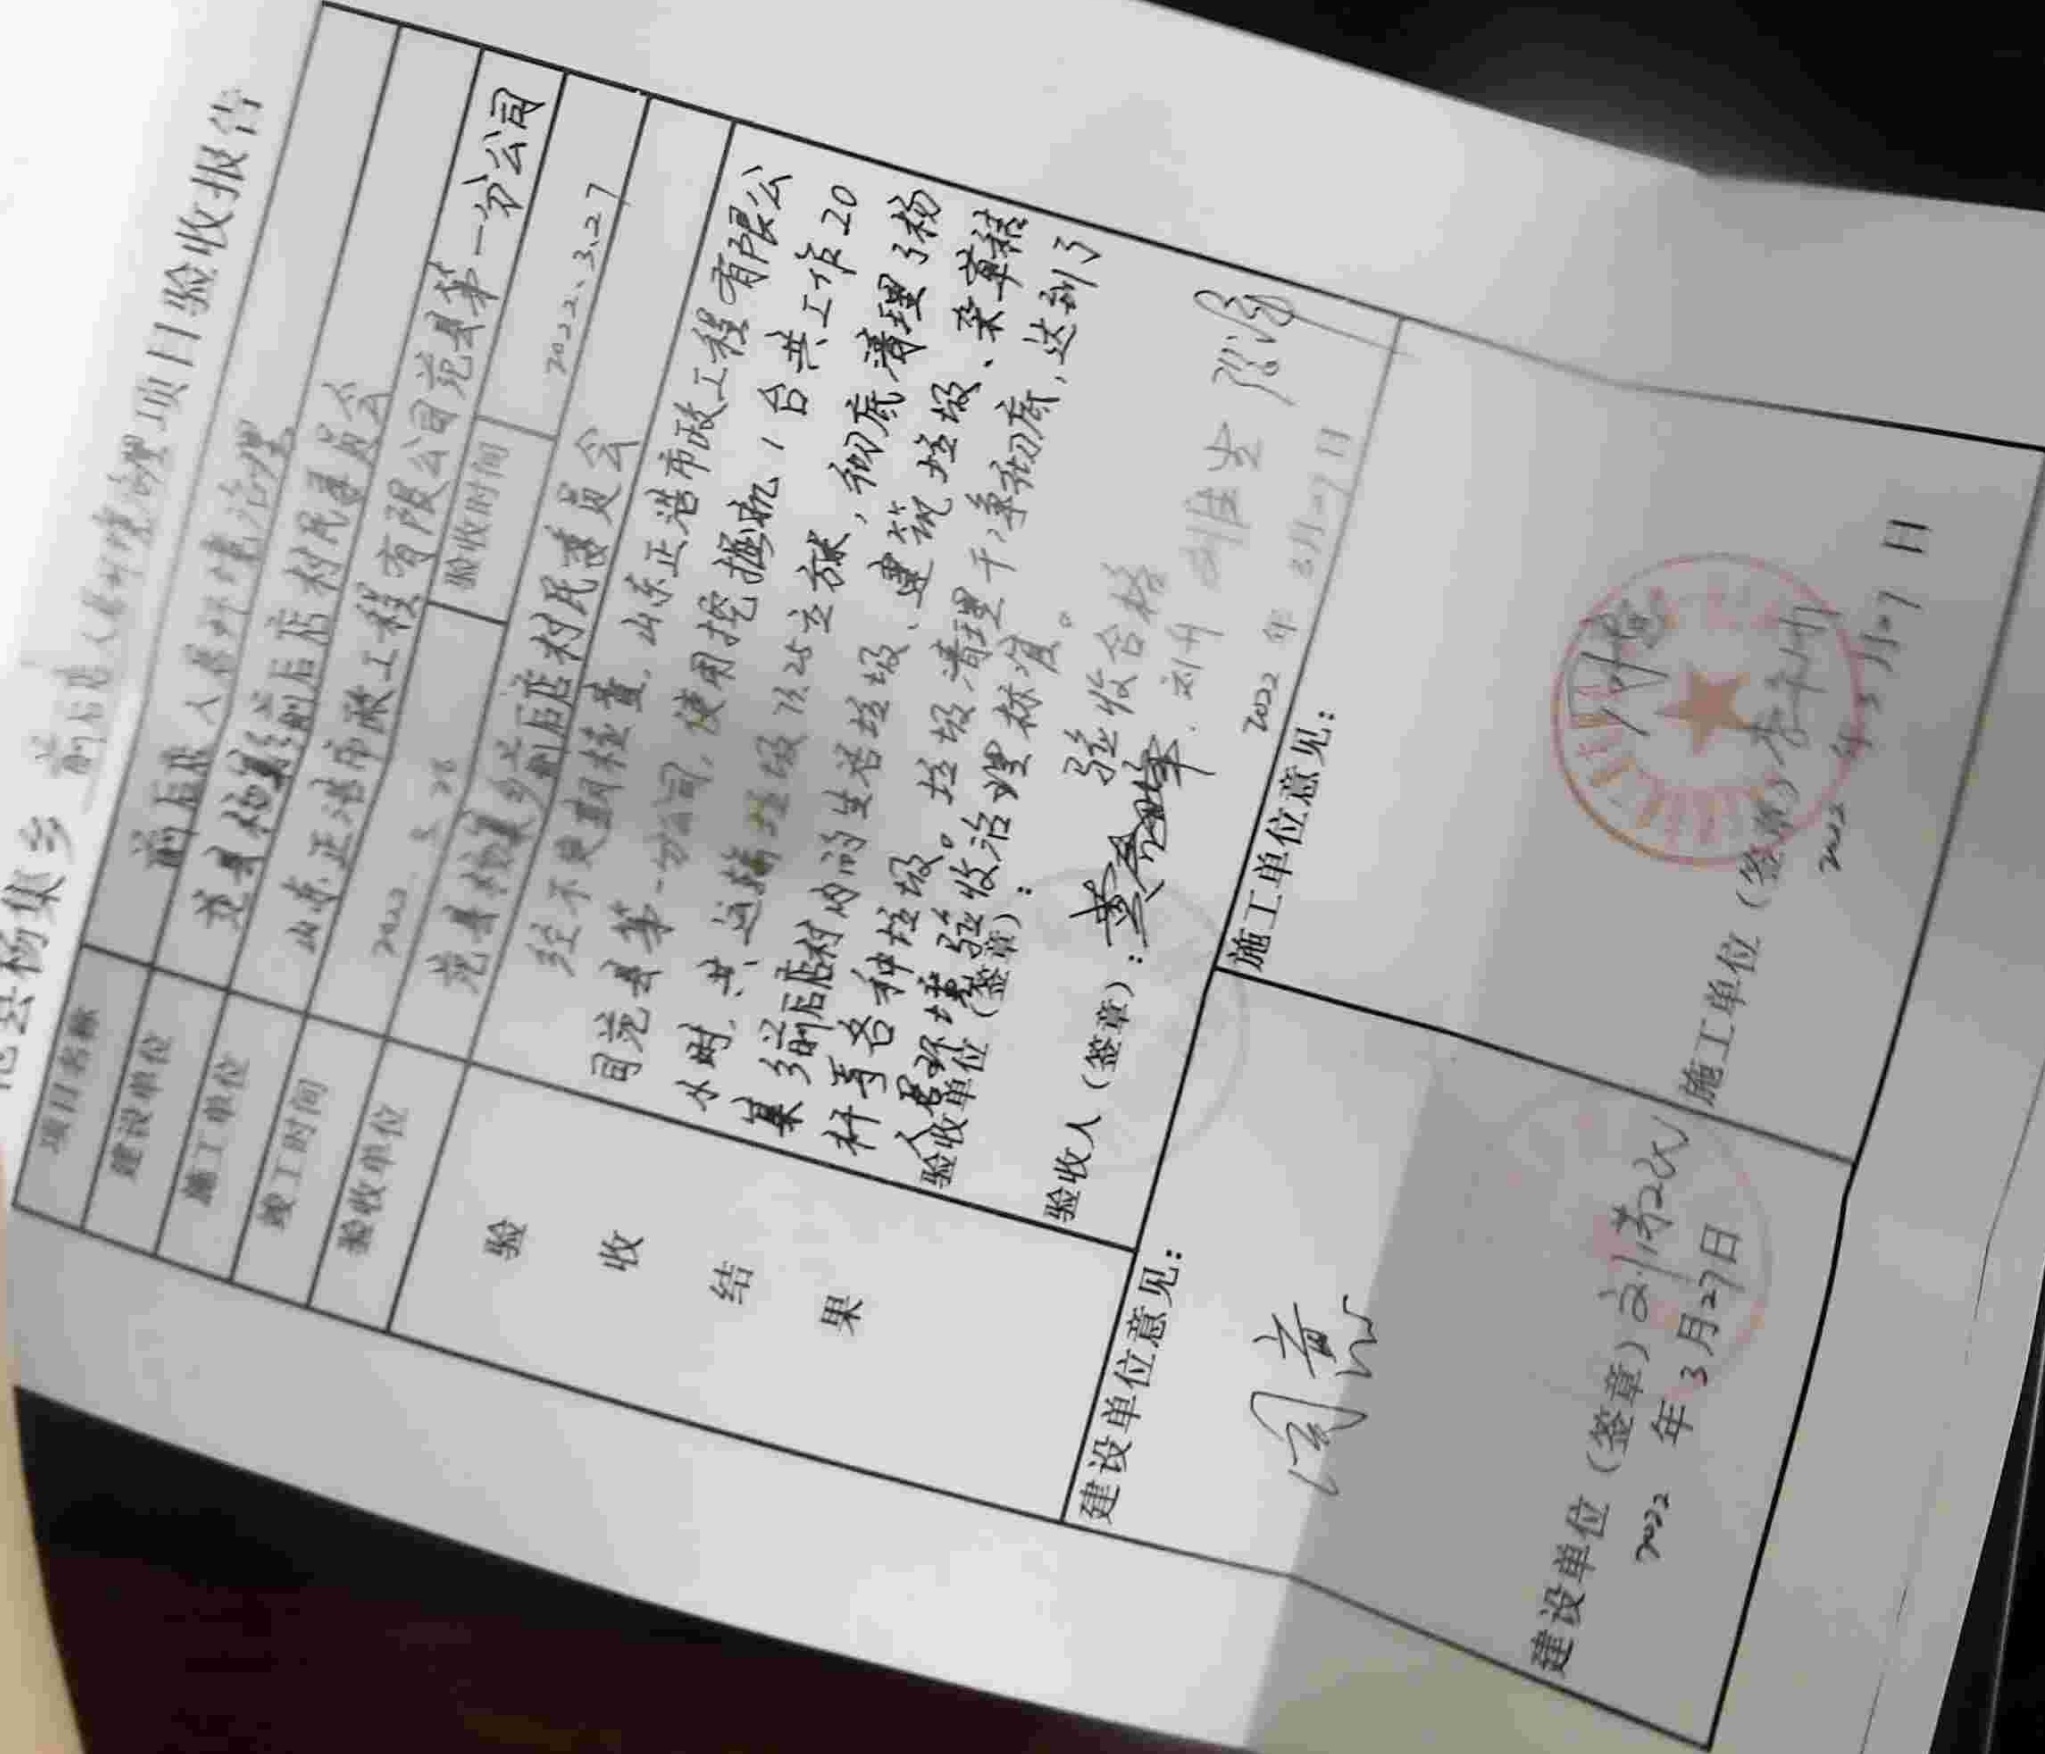 范县杨集乡 前后店人居环境治理项目验收报告
项目名称 前后店人居环境治理
建设单位 范县杨集乡前后店村民委员会
施工单位 山东正浩市政工程有限公司范县第一分公司
竣工时间 2022.3.26 验收时间 2022.3.27
验收单位 范县杨集乡前后店村民委员会
验收结果
经不定期检查,山东正浩市政工程有限公
司范县第一分公司,使用挖掘机1台共工作20
小时,共运输垃圾 25立方米,彻底清理了杨
集乡前后店村内的生活垃圾、建筑垃圾、杂草秸
秆等各种垃圾。垃圾清理干净彻底,达到了
人居环境验收治理标准。
验收单位(签章): 验收合格
验收人(签章):
2022 年 3月27日
建设单位意见: 施工单位意见:
同意 同意
建设单位(签章) 施工单位(签章)
2022 年 3月27日 2022 年 3月27日